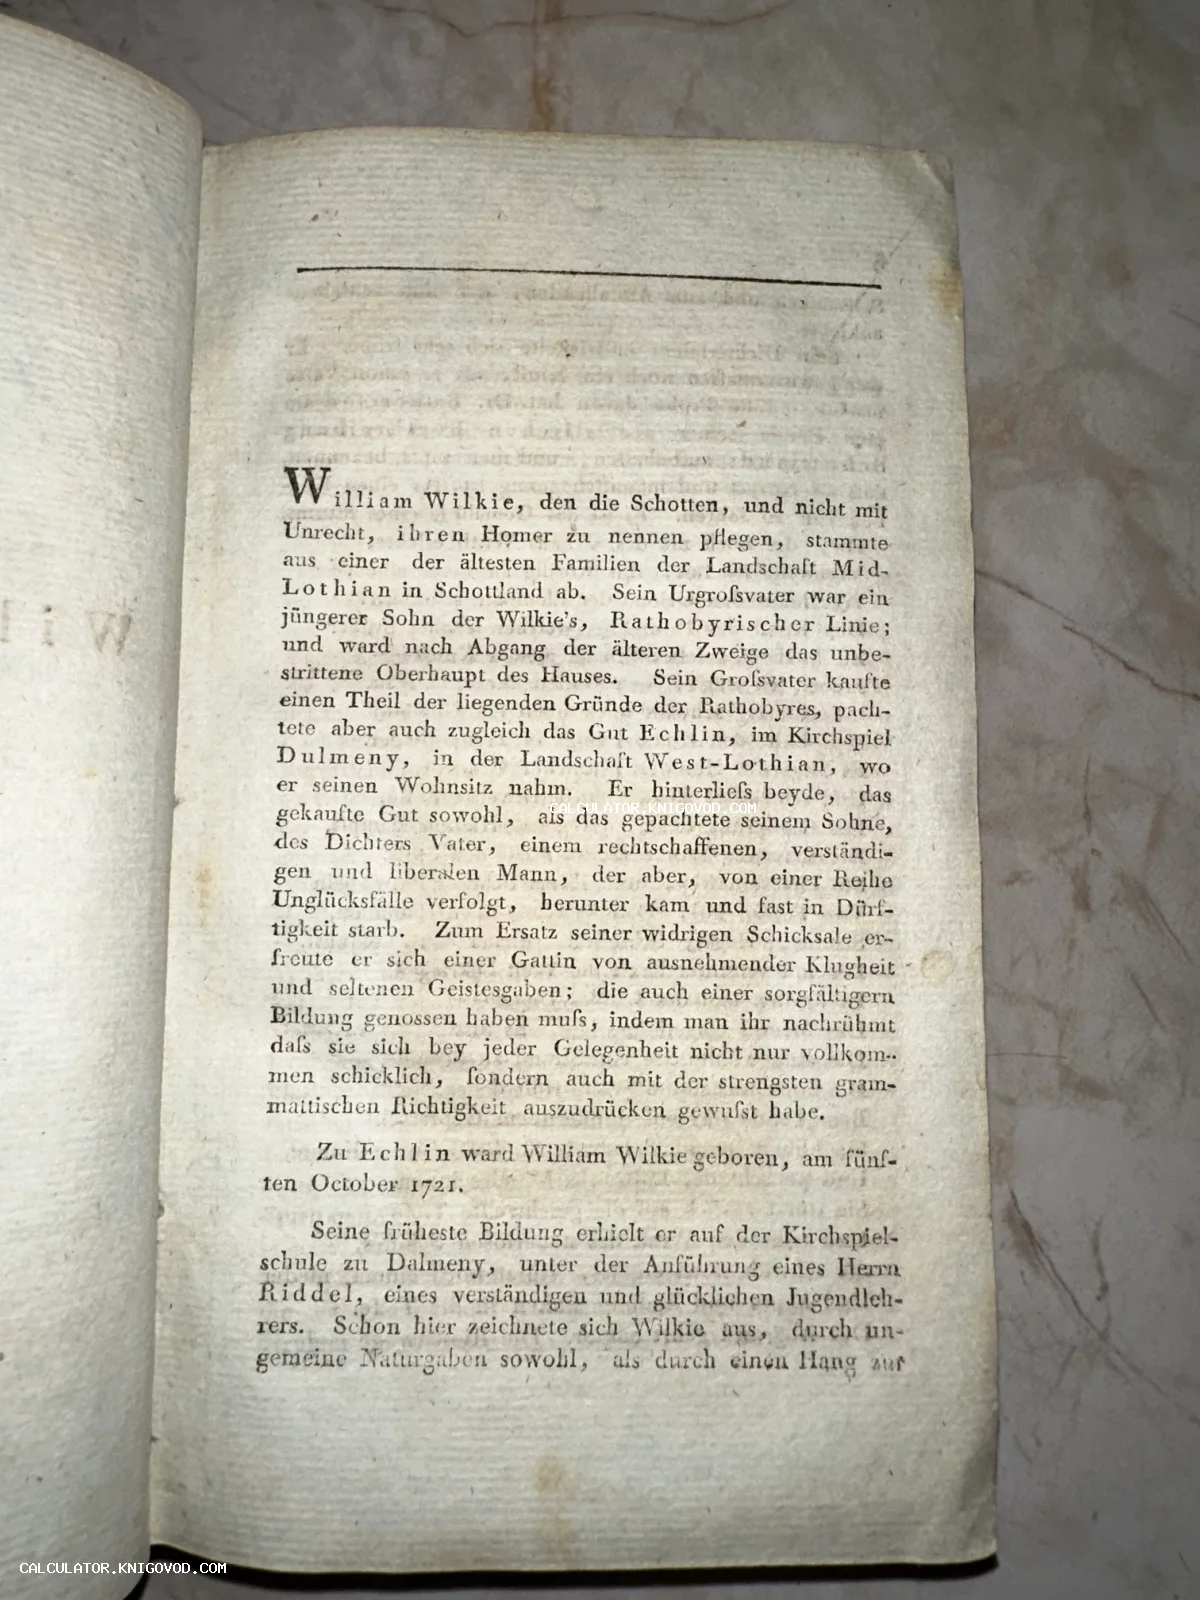 William Wilkie, den die Schotten, und nicht mit
Unrecht, ihren Homer zu nennen pflegen, stammte
aus einer der ältesten Familien der Landschaft Mid-
Lothian in Schottland ab. Sein Urgroſsvater war ein
jüngerer Sohn der Wilkie's, Rathobyrischer Linie;
und ward nach Abgang der älteren Zweige das unbe-
strittene Oberhaupt des Hauses. Sein Groſsvater kaufte
einen Theil der liegenden Gründe der Rathobyres, pach-
tete aber auch zugleich das Gut Echlin, im Kirchspiel
Dulmeny, in der Landschaft West-Lothian, wo
er seinen Wohnsitz nahm. Er hinterlieſs beyde, das
gekaufte Gut sowohl, als das gepachtete seinem Sohne,
des Dichters Vater, einem rechtschaffenen, verständi-
gen und liberalen Mann, der aber, von einer Reihe
Unglücksfälle verfolgt, herunter kam und fast in Dürf-
tigkeit starb. Zum Ersatz seiner widrigen Schicksale er-
freute er sich einer Gattin von ausnehmender Klugheit
und seltenen Geistesgaben; die auch einer sorgfältigern
Bildung genossen haben muſs, indem man ihr nachrühmt
daſs sie sich bey jeder Gelegenheit nicht nur vollkom-
men schicklich, ſondern auch mit der strengsten gram-
mattischen Richtigkeit auszudrücken gewuſst habe.
Zu Echlin ward William Wilkie geboren, am fünf-
ten October 1721.
Seine früheste Bildung erhielt er auf der Kirchspiel-
schule zu Dalmeny, unter der Anführung eines Herrn
Riddel, eines verständigen und glücklichen Jugendleh-
rers. Schon hier zeichnete sich Wilkie aus, durch un-
gemeine Naturgaben sowohl, als durch einen Hang zur
CALCULATOR.KNIGOVOD.COM
CALCULATOR.KNIGOVOD.COM